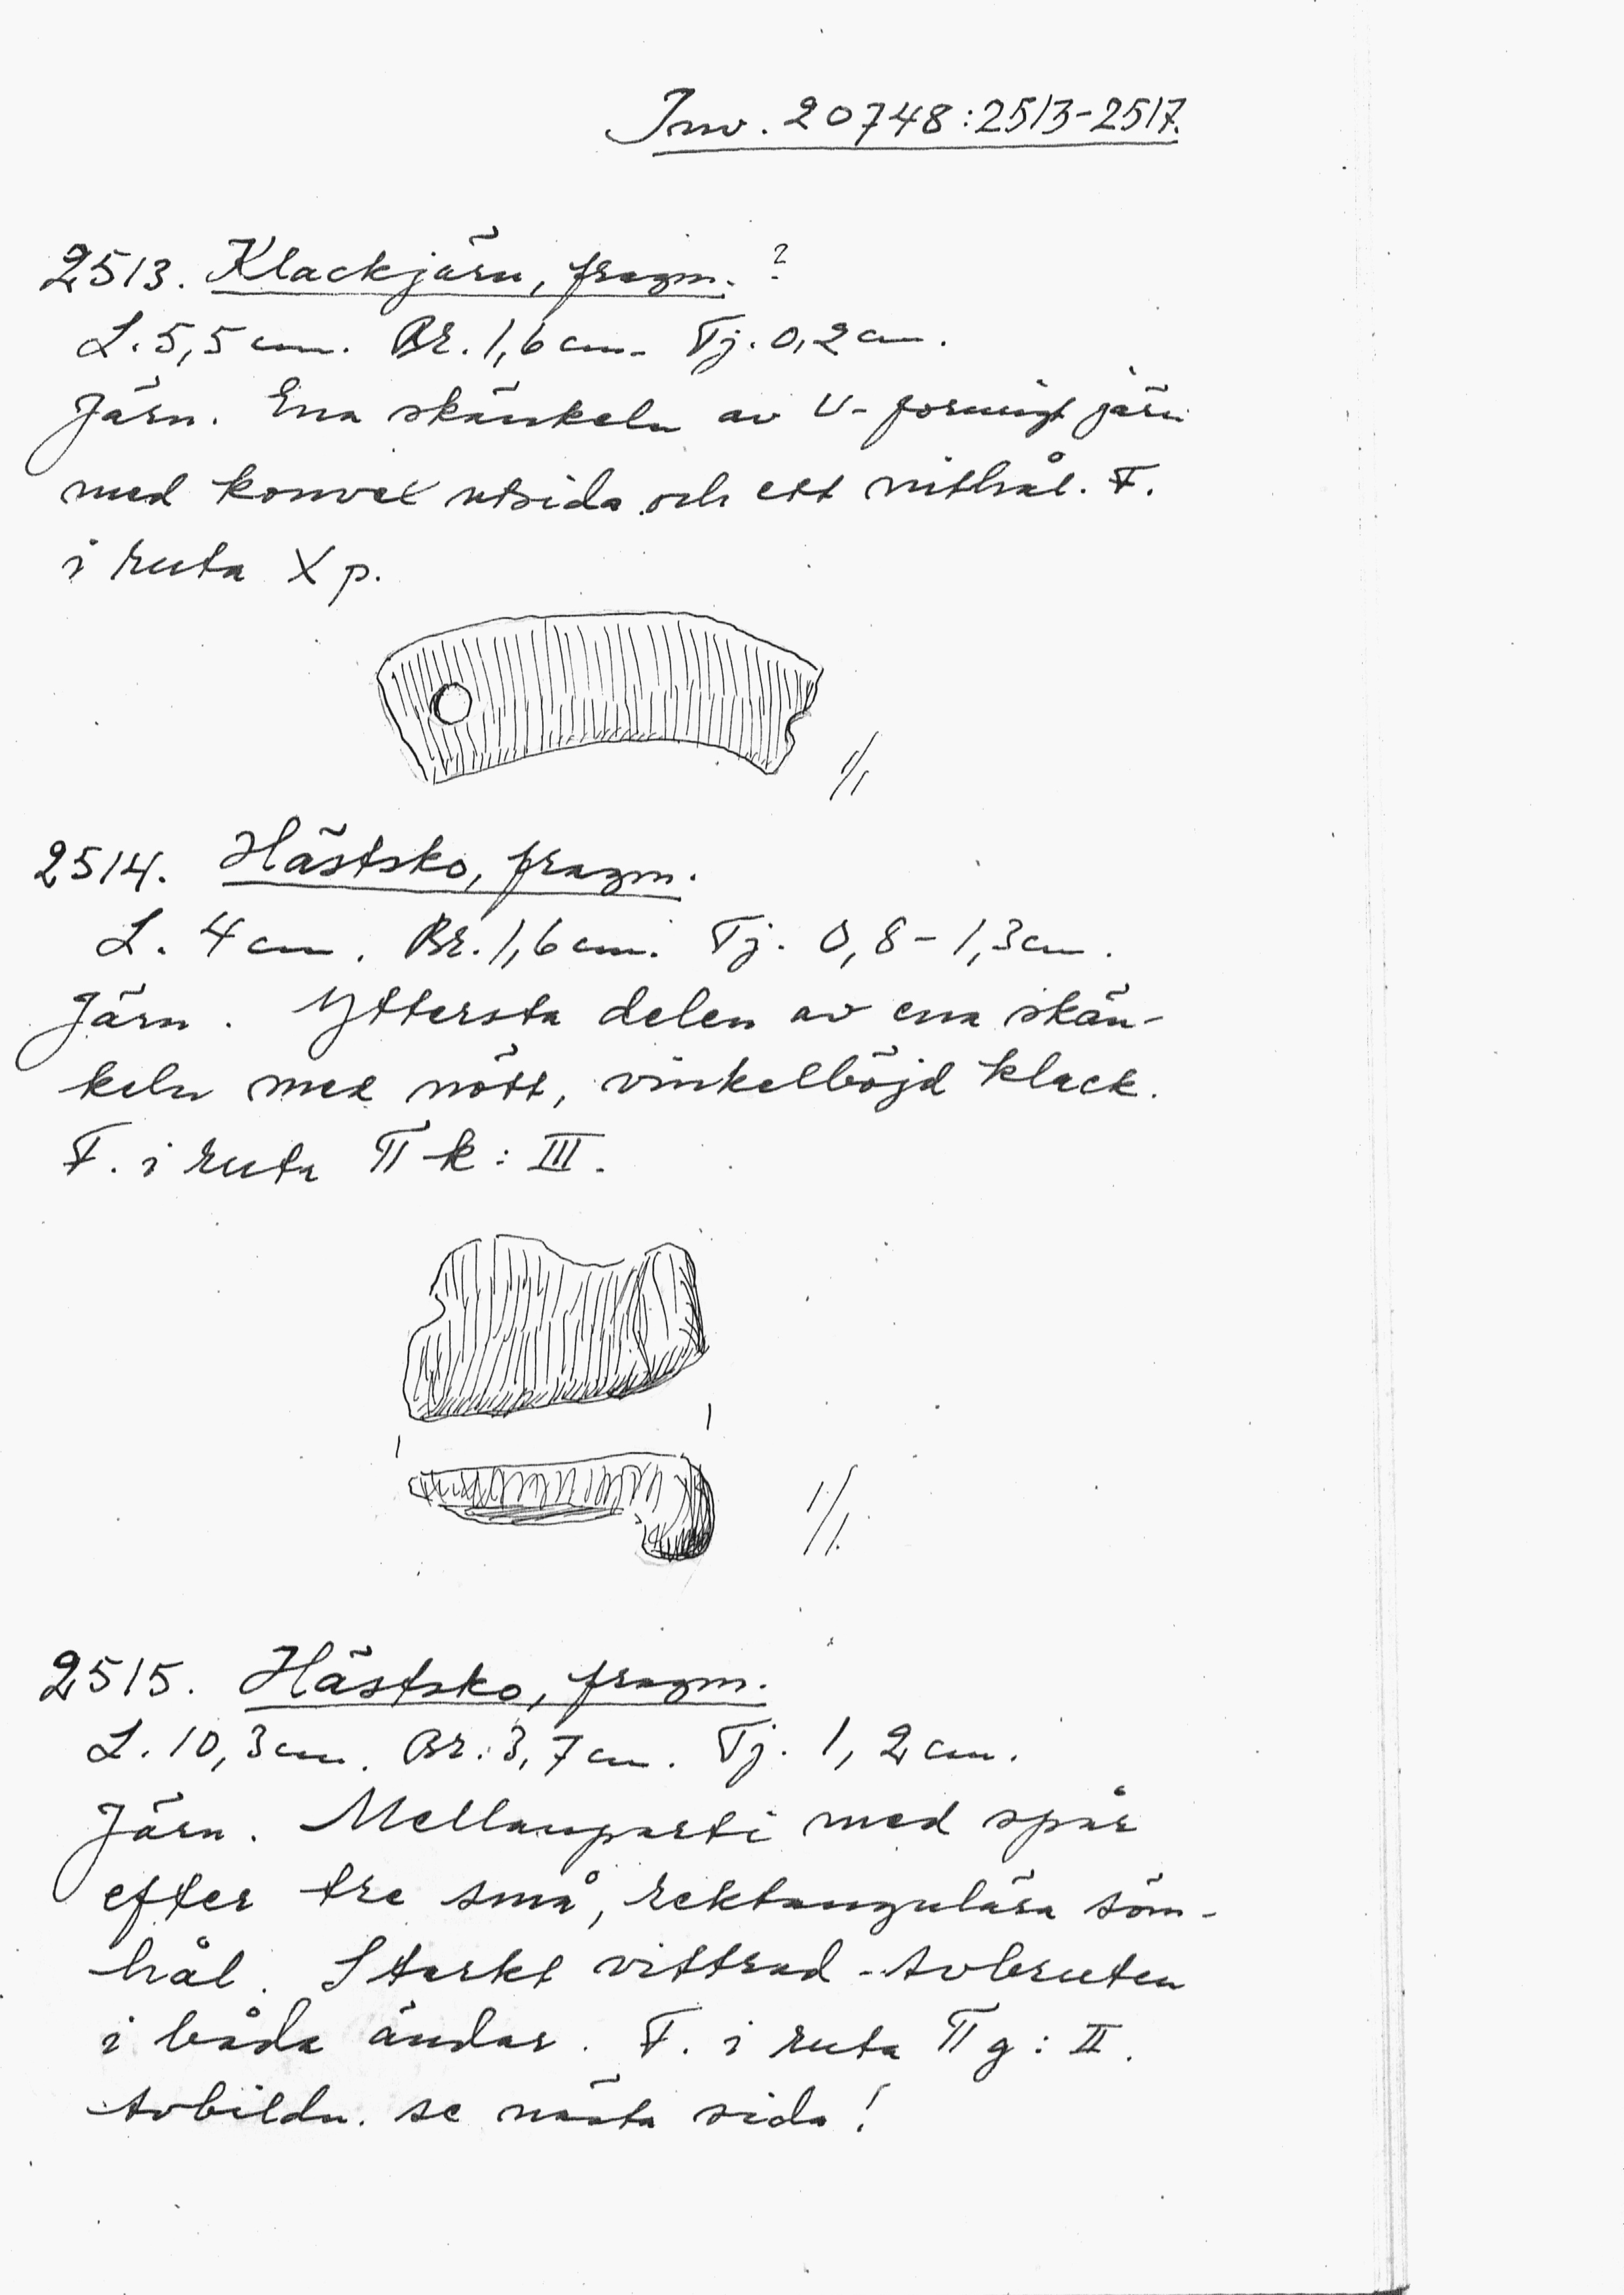 Inv. 20748:2513-2517.
2513. Klackjärn, fragm. ?
L. 5,5 cm. Br. 1,6 cm. Tj. 0,2 cm.
Järn. Ena skänkeln av U-formigt järn
med konvex utsida och ett nithål. F.
i ruta X p.
1/1
2514. Hästsko, fragm.
L. 4 cm. Br. 1,6 cm. Tj. 0,8-1,3 cm.
Järn. Yttersta delen av ena skän-
keln med nött, vinkelböjd klack.
F. i ruta TT k: III.
1/1
2515. Hästsko, fragm.
L. 10,3 cm. Br. 3,7 cm. Tj. 1,2 cm.
Järn. Mellanparti med spår
efter tre små, rektangulära söm-
hål. Starkt vittrad. Avbruten
i båda ändar. F. i ruta TT g: II.
Avbildn. se nästa sida!